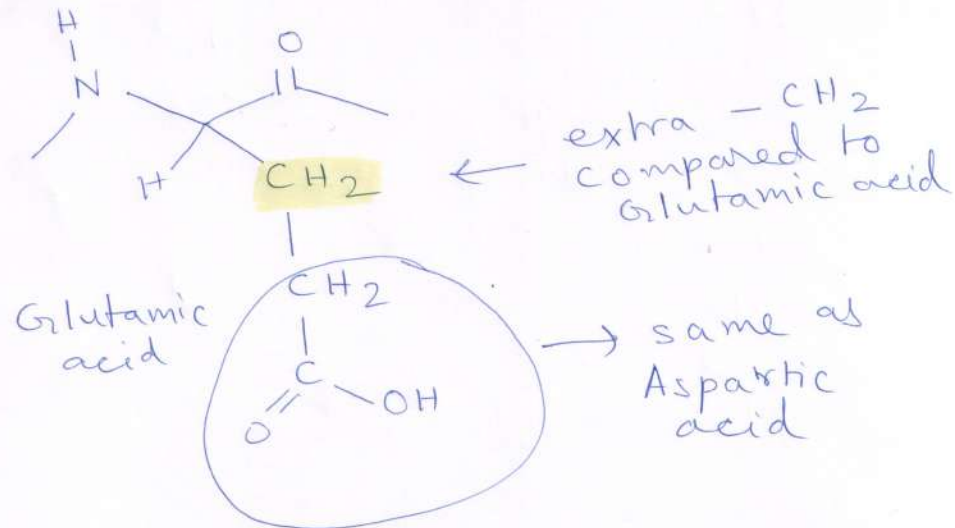 H
N
O
H
CH2
extra - CH2
compared to
Glutamic acid
CH2
Glutamic
acid
C
O
OH
same as
Aspartic
acid